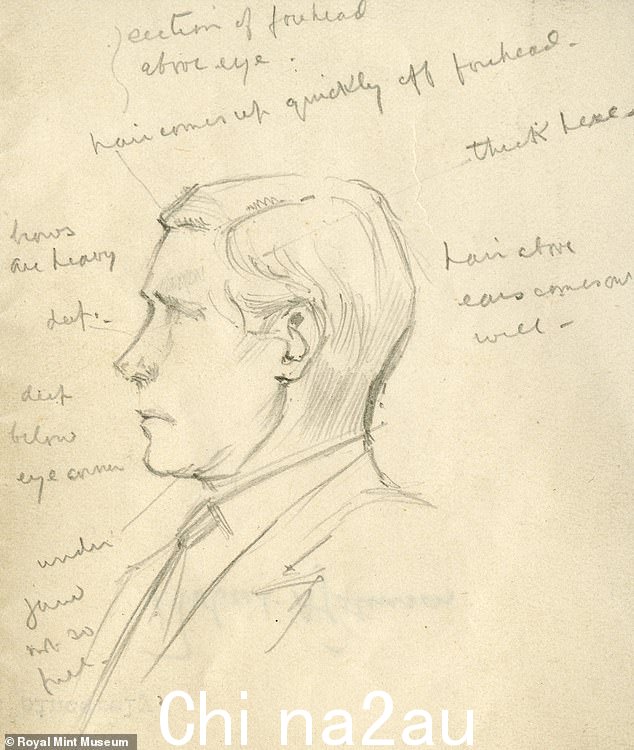 section of forehead
above eye.
hair comes up quickly off forehead.
thick here.
brows
are heavy
hair above
ears comes out
well -
deep
below
eye corner
under
jaw
not so
full.
Chi na2au
© Royal Mint Museum